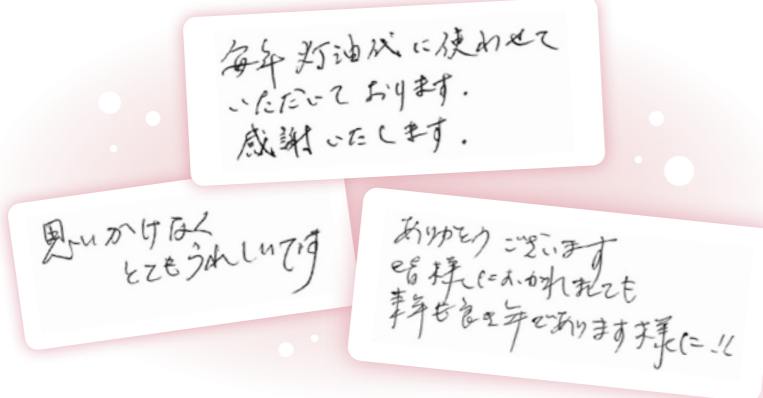 毎年灯油代に使わせて
いただいております.
感謝いたします.
思いかけなく
とてもうれしいです
ありがとうございます
皆様におかれましても
来年も良き年であります様に!!